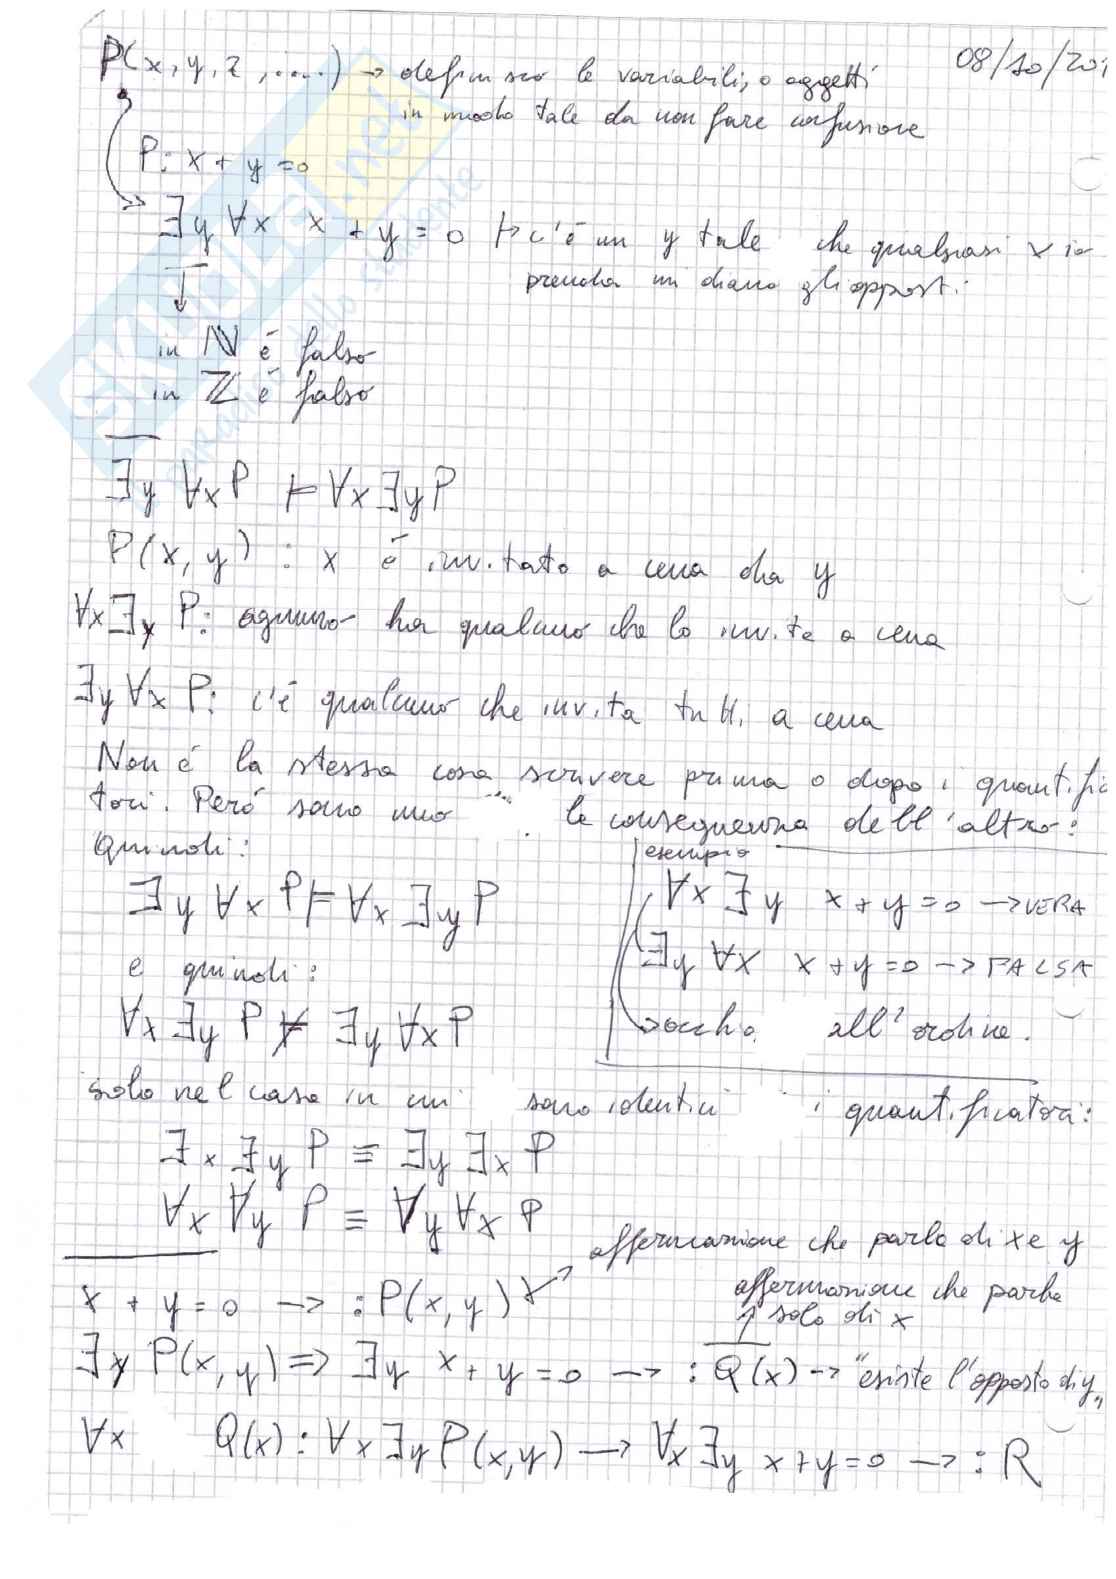 P(x, y, z, .....) → definisco le variabili, o oggetti
08/10/201
in modo tale da non fare confusione
P: x + y = 0
∃y ∀x x + y = 0 ⊢> c'é un y tale che qualsiasi x io
prenda mi diano gli opposti.
in ℕ é falso
in ℤ é falso
∃y ∀x P ⊢ ∀x ∃y P
P(x, y) : x é invitato a cena da y
∀x ∃y P: ognuno ha qualcuno che lo invita a cena
∃y ∀x P: c'é qualcuno che invita tutti a cena
Non é la stessa cosa scrivere prima o dopo i quantifica
tori. Peró sono uno le conseguenza dell'altro:
Quindi:
∃y ∀x P ⊨ ∀x ∃y P
e quindi:
∀x ∃y P ⊭ ∃y ∀x P
esempio
∀x ∃y x + y = 0 → VERA
∃y ∀x x + y = 0 → FALSA
→ occhio all'ordine.
solo nel caso in cui sono identici i quantificatori:
∃x ∃y P ≡ ∃y ∃x P
∀x ∀y P ≡ ∀y ∀x P
affermazione che parla di x e y
x + y = 0 → : P(x, y)
affermazione che parla
solo di x
∃y P(x, y) => ∃y x + y = 0 → : Q(x) → "esiste l'opposto di y"
∀x Q(x) : ∀x ∃y P(x,y) → ∀x ∃y x + y = 0 → : R
skuola.net
paradiso dello studente